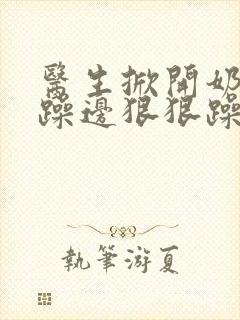 醫生掀開奶
躁邊狠狠躁
執筆游夏